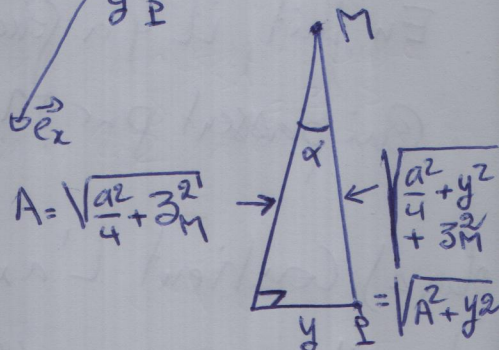 y P
e⃗x
M
α
A = √(a²/4 + z²M)
√(a²/4 + y² + z²M)
= √(A² + y²)
y P